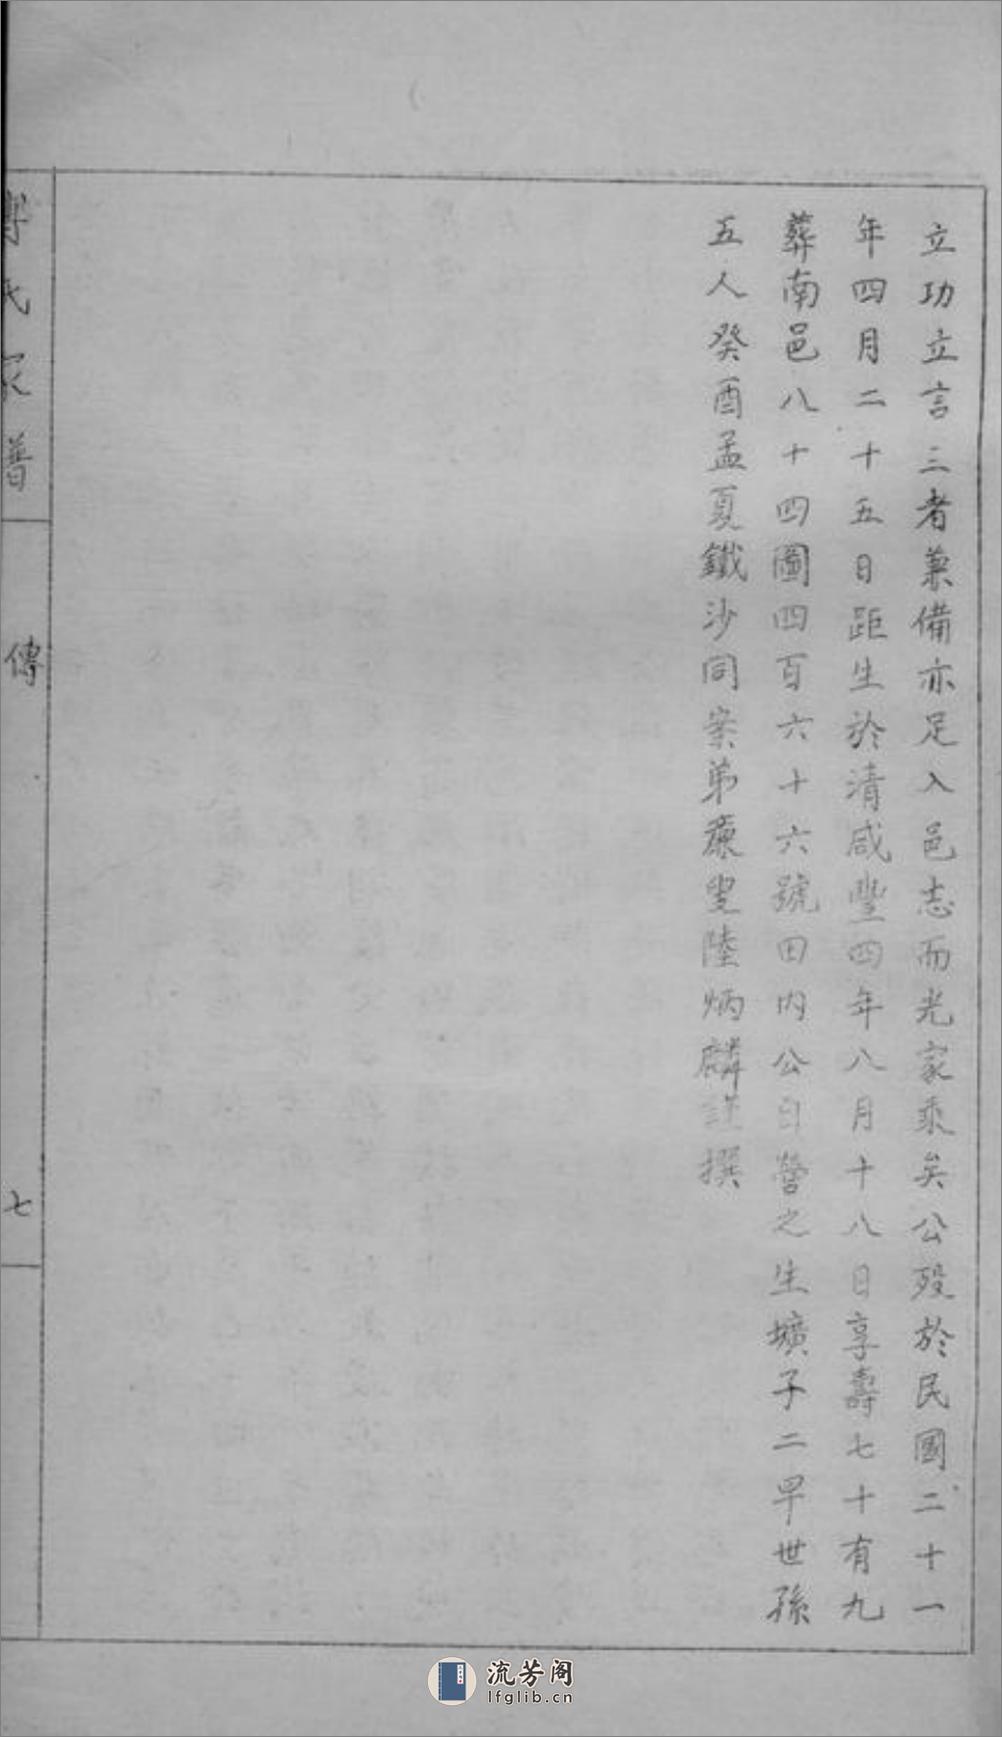 立功立言三者兼備亦足入邑志而光家乘矣公歿於民國二十一
年四月二十五日距生於清咸豐四年八月十八日享壽七十有九
葬南邑八十四圖四百六十六號田內公自營之生壙子二早世孫
五人癸酉孟夏鐵沙同案弟叟陸炳麟謹撰
氏家譜
傳
七
流芳阁
lfglib.cn